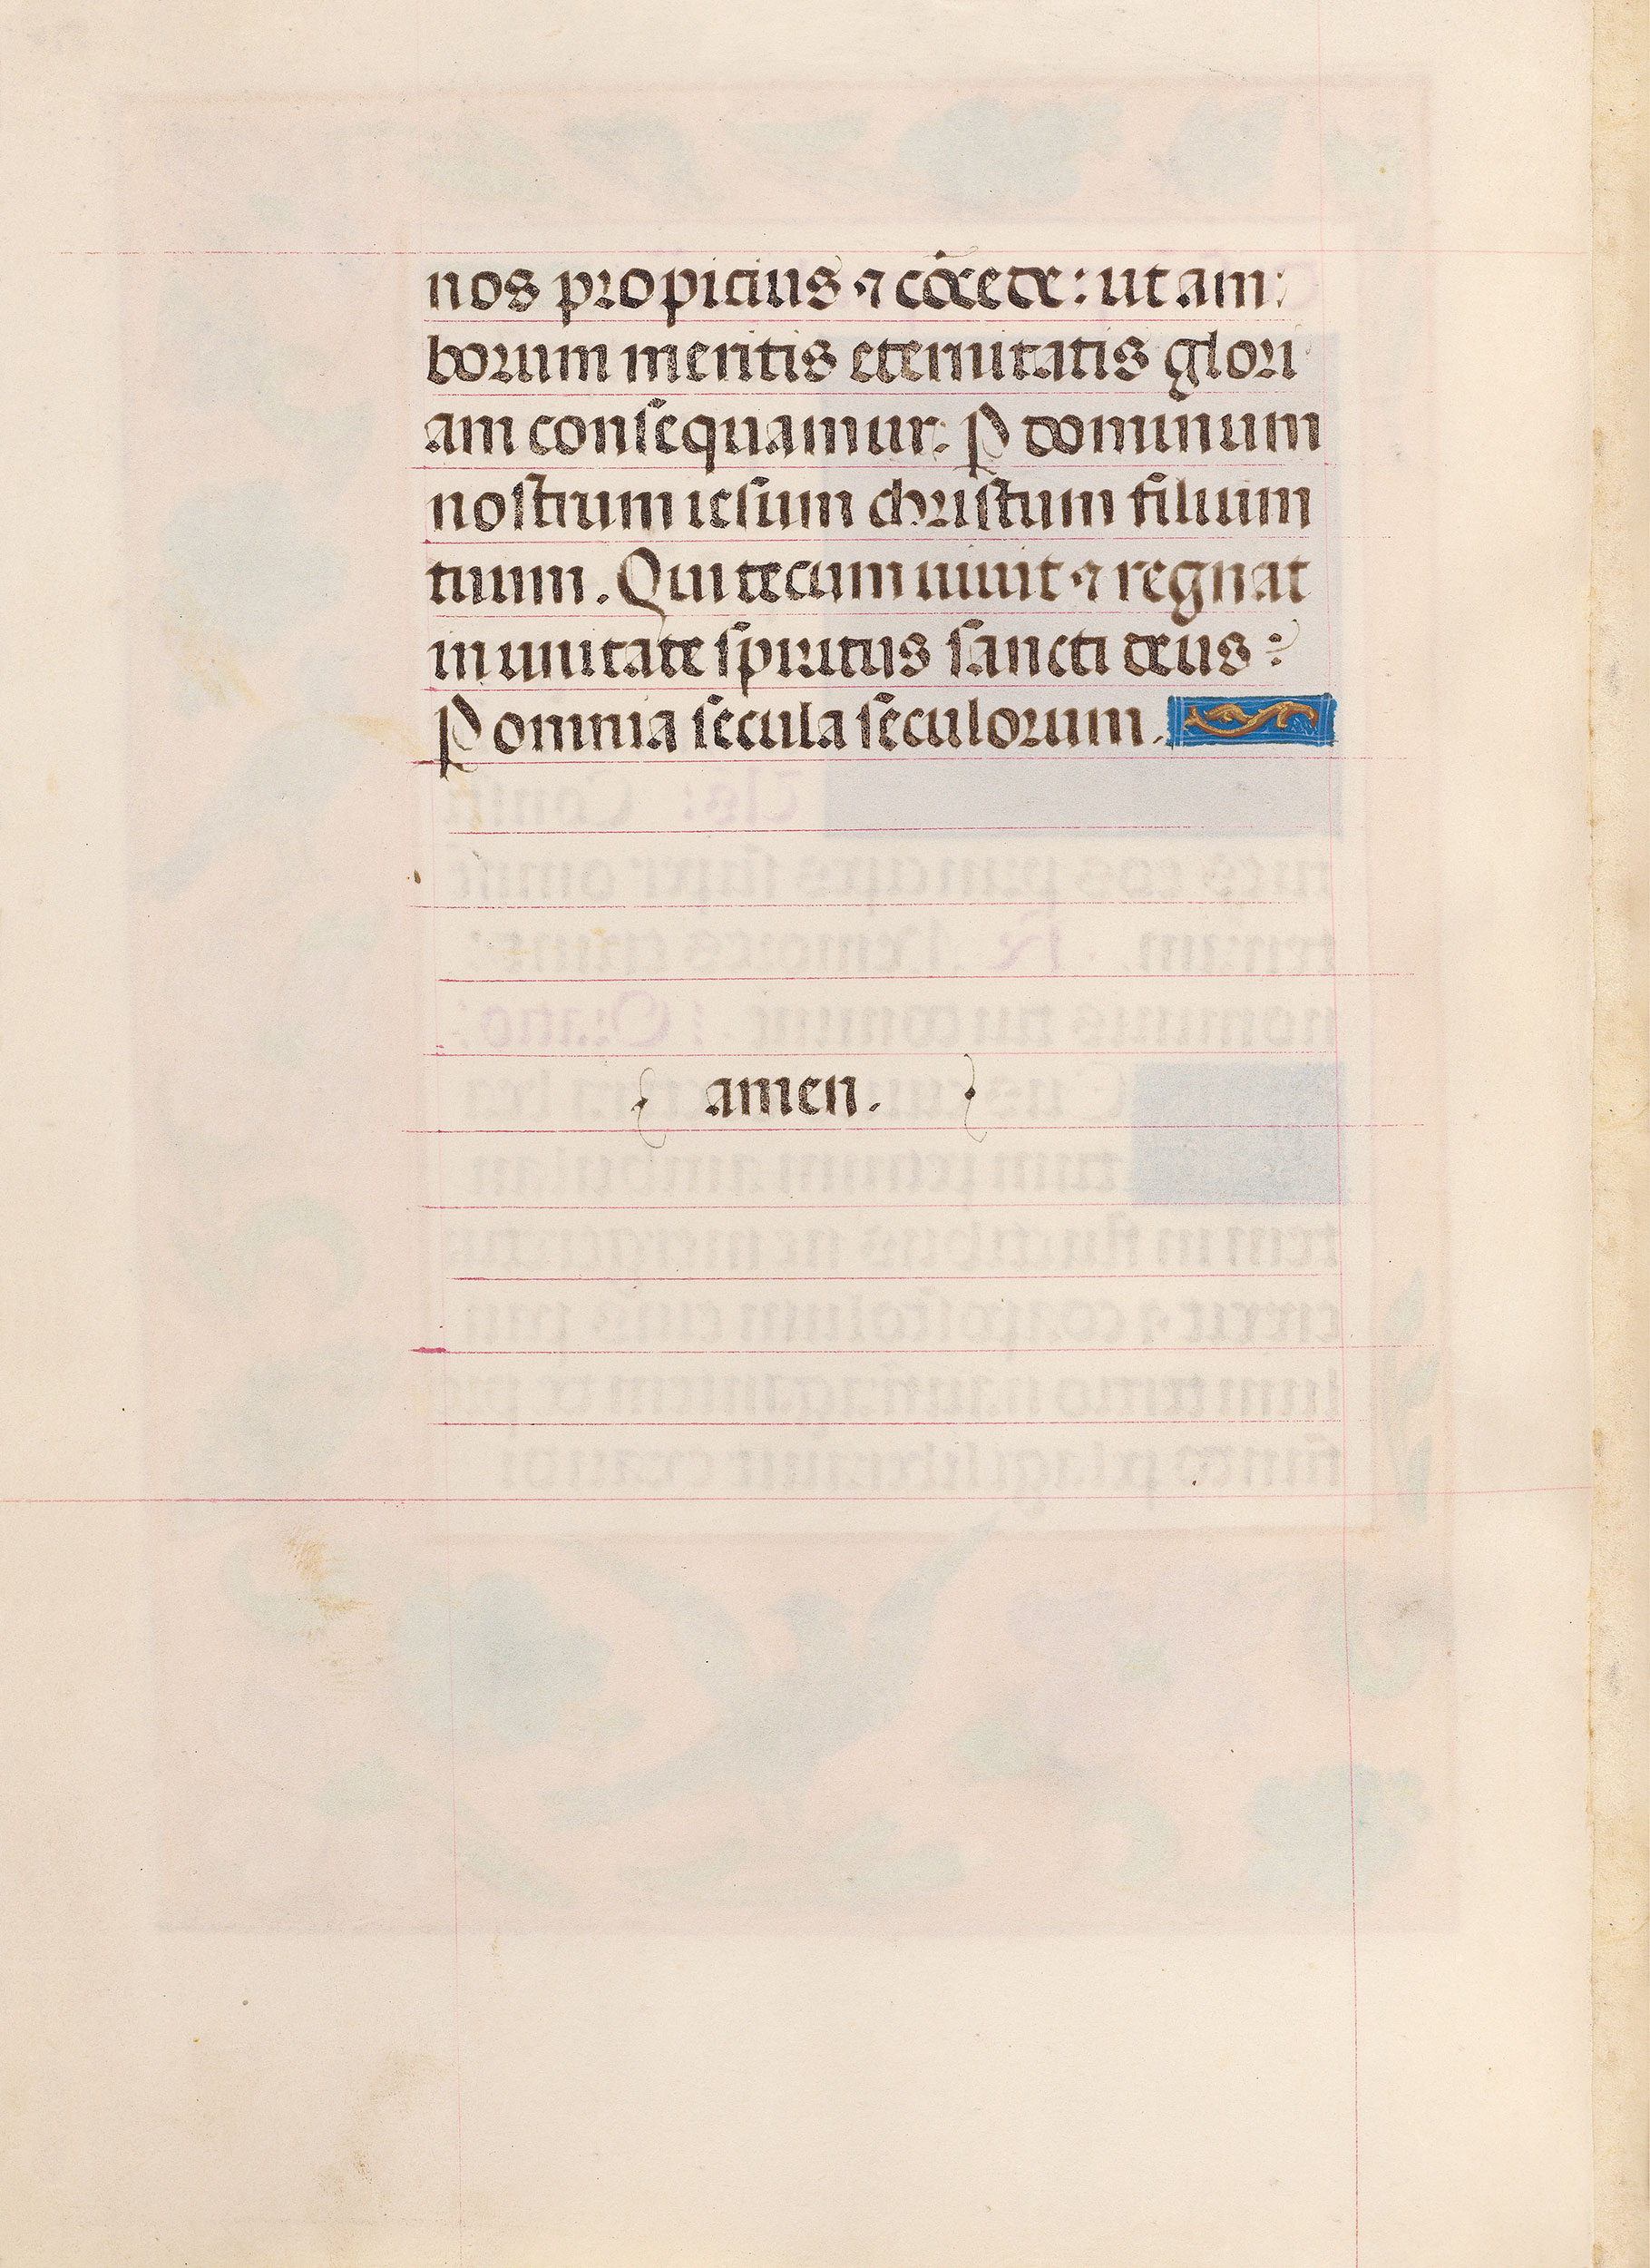 nos propicius ⁊ cōcede: ut am:
borum meritis eternitatis glori
am consequamur. P dominum
nostrum iesum christum filium
tuum. Qui tecum uiuit ⁊ regnat
in unitate spiritus sancti deus:
P omnia secula seculorum.
amen.